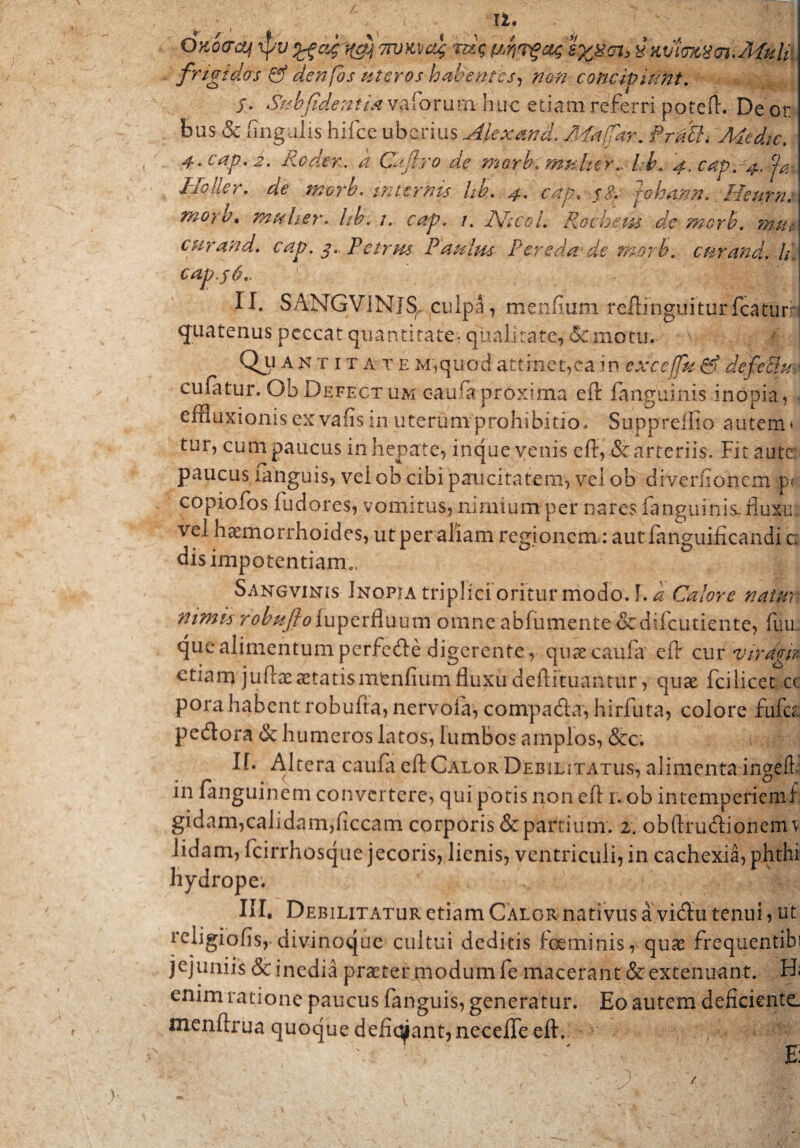 12.
Ὁκόσαι ψυχρὰς καὶ πυκνὰς τὰς μήτρας ἔχουσι, οὐ κυΐσκουσι. Muli
frigidos & densos uteros habentes, non concipiunt.
5. Subsidentia vasorum huc etiam referri potest. De or
bus & singulis hisce uberius Alexand. Massar. Pract. Medic.
4. cap. 2. Roder. à Castro de morb. mulier. lib. 4. cap. 4. Ja
Holler. de morb. internis lib. 4. cap. 58. Johann. Heurn.
morb. mulier. lib. 1. cap. 1. Nicol. Rocheus de morb. mu
curand. cap. 3. Petrus Paulus Pereda de morb. curand. li
cap. 56.
II. SANGVINIS, culpâ, mensium restinguitur scatur
quatenus peccat quantitate, qualitate, & motu.
QUANTITATEM, quod attinet, ea in excessu & defectu
cusatur. Ob DEFECTUM causa proxima est sanguinis inopia,
effluxionis ex vasis in uterum prohibitio. Suppressio autem
tur, cum paucus in hepate, inque venis est, & arteriis. Fit aute
paucus sanguis, vel ob cibi paucitatem, vel ob diversionem p
copiosos sudores, vomitus, nimium per nares sanguinis fluxu
vel hæmorrhoides, ut per aliam regionem: aut sanguificandi
dis impotentiam.
SANGVINIS INOPIA triplici oritur modo. I. à Calore natur
nimis robusto superfluum omne absumente & discutiente, suu
que alimentum perfectè digerente, quæ causa est cur viragin
etiam justæ ætatis mensium fluxu destituantur, quæ scilicet
pora habent robusta, nervosa, compacta, hirsuta, colore fusca
pectora & humeros latos, lumbos amplos, &c.
II. Altera causa est CALOR DEBILITATUS, alimenta ingest
in sanguinem convertere, qui potis non est 1. ob intemperiem f
gidam, calidam, siccam corporis & partium. 2. obstructionem v
lidam, scirrhosque jecoris, lienis, ventriculi, in cachexiâ, phthi
hydrope.
III. DEBILITATUR etiam CALOR nativus à victu tenui, ut
religiosis, divinoque cultui deditis fœminis, quæ frequentib
jejuniis & inediâ præter modum se macerant & extenuant. H
enim ratione paucus sanguis, generatur. Eo autem deficiente
menstrua quoque deficiant, necesse est.
E